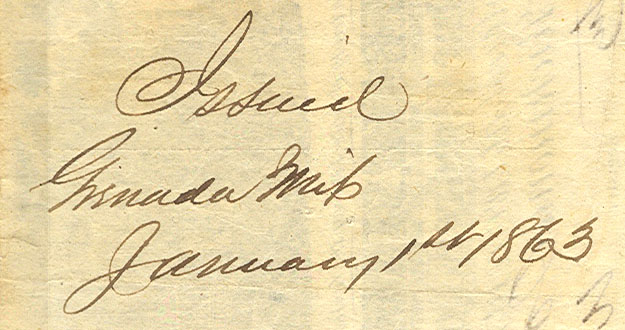 Issued
Grenada Miss
January 1st 1863